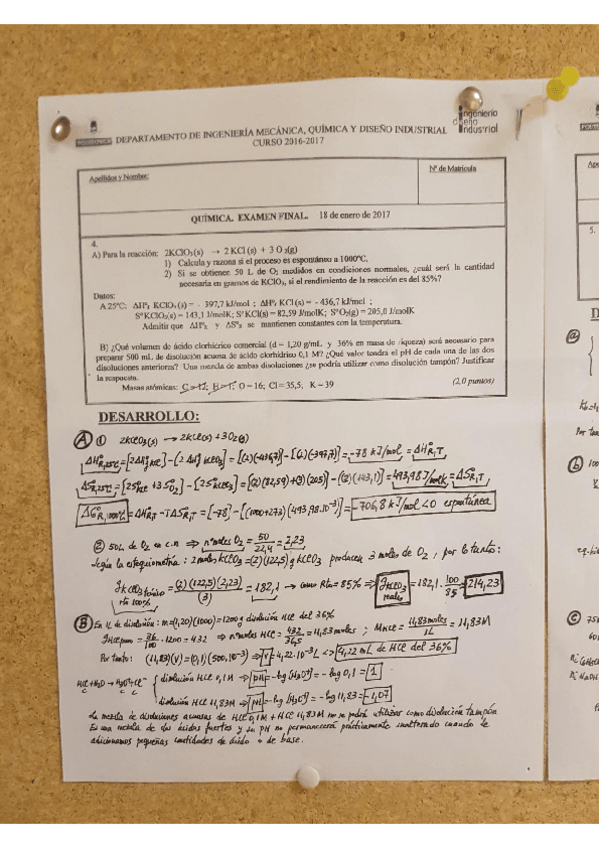 ingeniería
diseño
industrial
POLITÉCNICA DEPARTAMENTO DE INGENIERÍA MECÁNICA, QUÍMICA Y DISEÑO INDUSTRIAL
CURSO 2016-2017
Apellidos y Nombre:
Nº de Matrícula
QUÍMICA. EXAMEN FINAL. 18 de enero de 2017
4.
A) Para la reacción: 2KClO₃(s) → 2 KCl (s) + 3 O₂(g)
1) Calcula y razona si el proceso es espontáneo a 1000ºC.
2) Si se obtienen 50 L de O₂ medidos en condiciones normales, ¿cuál será la cantidad
necesaria en gramos de KClO₃, si el rendimiento de la reacción es del 85%?
Datos:
A 25ºC: ΔHºf KClO₃ (s) = - 397,7 kJ/mol ; ΔHºf KCl (s) = - 436,7 kJ/mol ;
Sº KClO₃(s) = 143,1 J/molK; Sº KCl(s) = 82,59 J/molK; Sº O₂(g) = 205,0 J/molK
Admitir que ΔHºR y ΔSºR se mantienen constantes con la temperatura.
B) ¿Qué volumen de ácido clorhídrico comercial (d = 1,20 g/mL y 36% en masa de riqueza) será necesario para
preparar 500 mL de disolución acuosa de ácido clorhídrico 0,1 M? ¿Qué valor tendrá el pH de cada una de las dos
disoluciones anteriores? Una mezcla de ambas disoluciones ¿se podría utilizar como disolución tampón? Justificar
la respuesta.
Masas atómicas: C = 12; H = 1; O = 16; Cl = 35,5; K = 39 (2,0 puntos)
DESARROLLO:
A 1 2KClO₃(s) → 2KCl(s) + 3O₂(g)
ΔHºR,25ºC = [2ΔHºf KCl] - [2ΔHºf KClO₃] = [(2)(-436,7)] - [(2)(-397,7)] = -78 kJ/mol = ΔHºR,T
ΔSºR,25ºC = [2SºKCl + 3SºO₂] - [2SºKClO₃] = [(2)(82,59) + (3)(205)] - [(2)(143,1)] = 493,98 J/molK = ΔSºR,T
ΔGºR,1000ºC = ΔHºR,T - TΔSºR,T = [-78] - [(1000+273)(493,98·10⁻³)] = -706,8 kJ/mol < 0 espontánea
2 50L de O₂ en c.n ⇒ nº moles O₂ = 50/22,4 = 2,23
Según la estequiometría: 2 moles KClO₃ = (2)(122,5) g KClO₃ producen 3 moles de O₂, por lo tanto:
g KClO₃ teórico rto 100% = (2)(122,5)(2,23)/(3) = 182,1 → como Rto = 85% ⇒ g KClO₃ reales = 182,1 · 100/85 = 214,23
B En 1L de disolución: m = (1,20)(1000) = 1200 g disolución HCl del 36%
g HCl puro = 36/100 · 1200 = 432 ⇒ nº moles HCl = 432/36,5 = 11,83 moles ; M HCl = 11,83 moles/1L = 11,83M
Por tanto: (11,83)(V) = (0,1)(500·10⁻³) ⇒ V = 4,22·10⁻³L <> 4,22 mL de HCl del 36%
HCl+H₂O → H₃O⁺+Cl⁻ disolución HCl 0,1M ⇒ pH = -log [H₃O⁺] = -log 0,1 = 1
disolución HCl 11,83M ⇒ pH = -log [H₃O⁺] = -log 11,83 = -1,07
La mezcla de disoluciones acuosas de HCl 0,1M + HCl 11,83M no se podrá utilizar como disolución tampón
Es una mezcla de dos ácidos fuertes y su pH no permanecerá prácticamente inalterado cuando le
adicionamos pequeñas cantidades de ácido o de base.
5.
a
Por tan
b
100
c